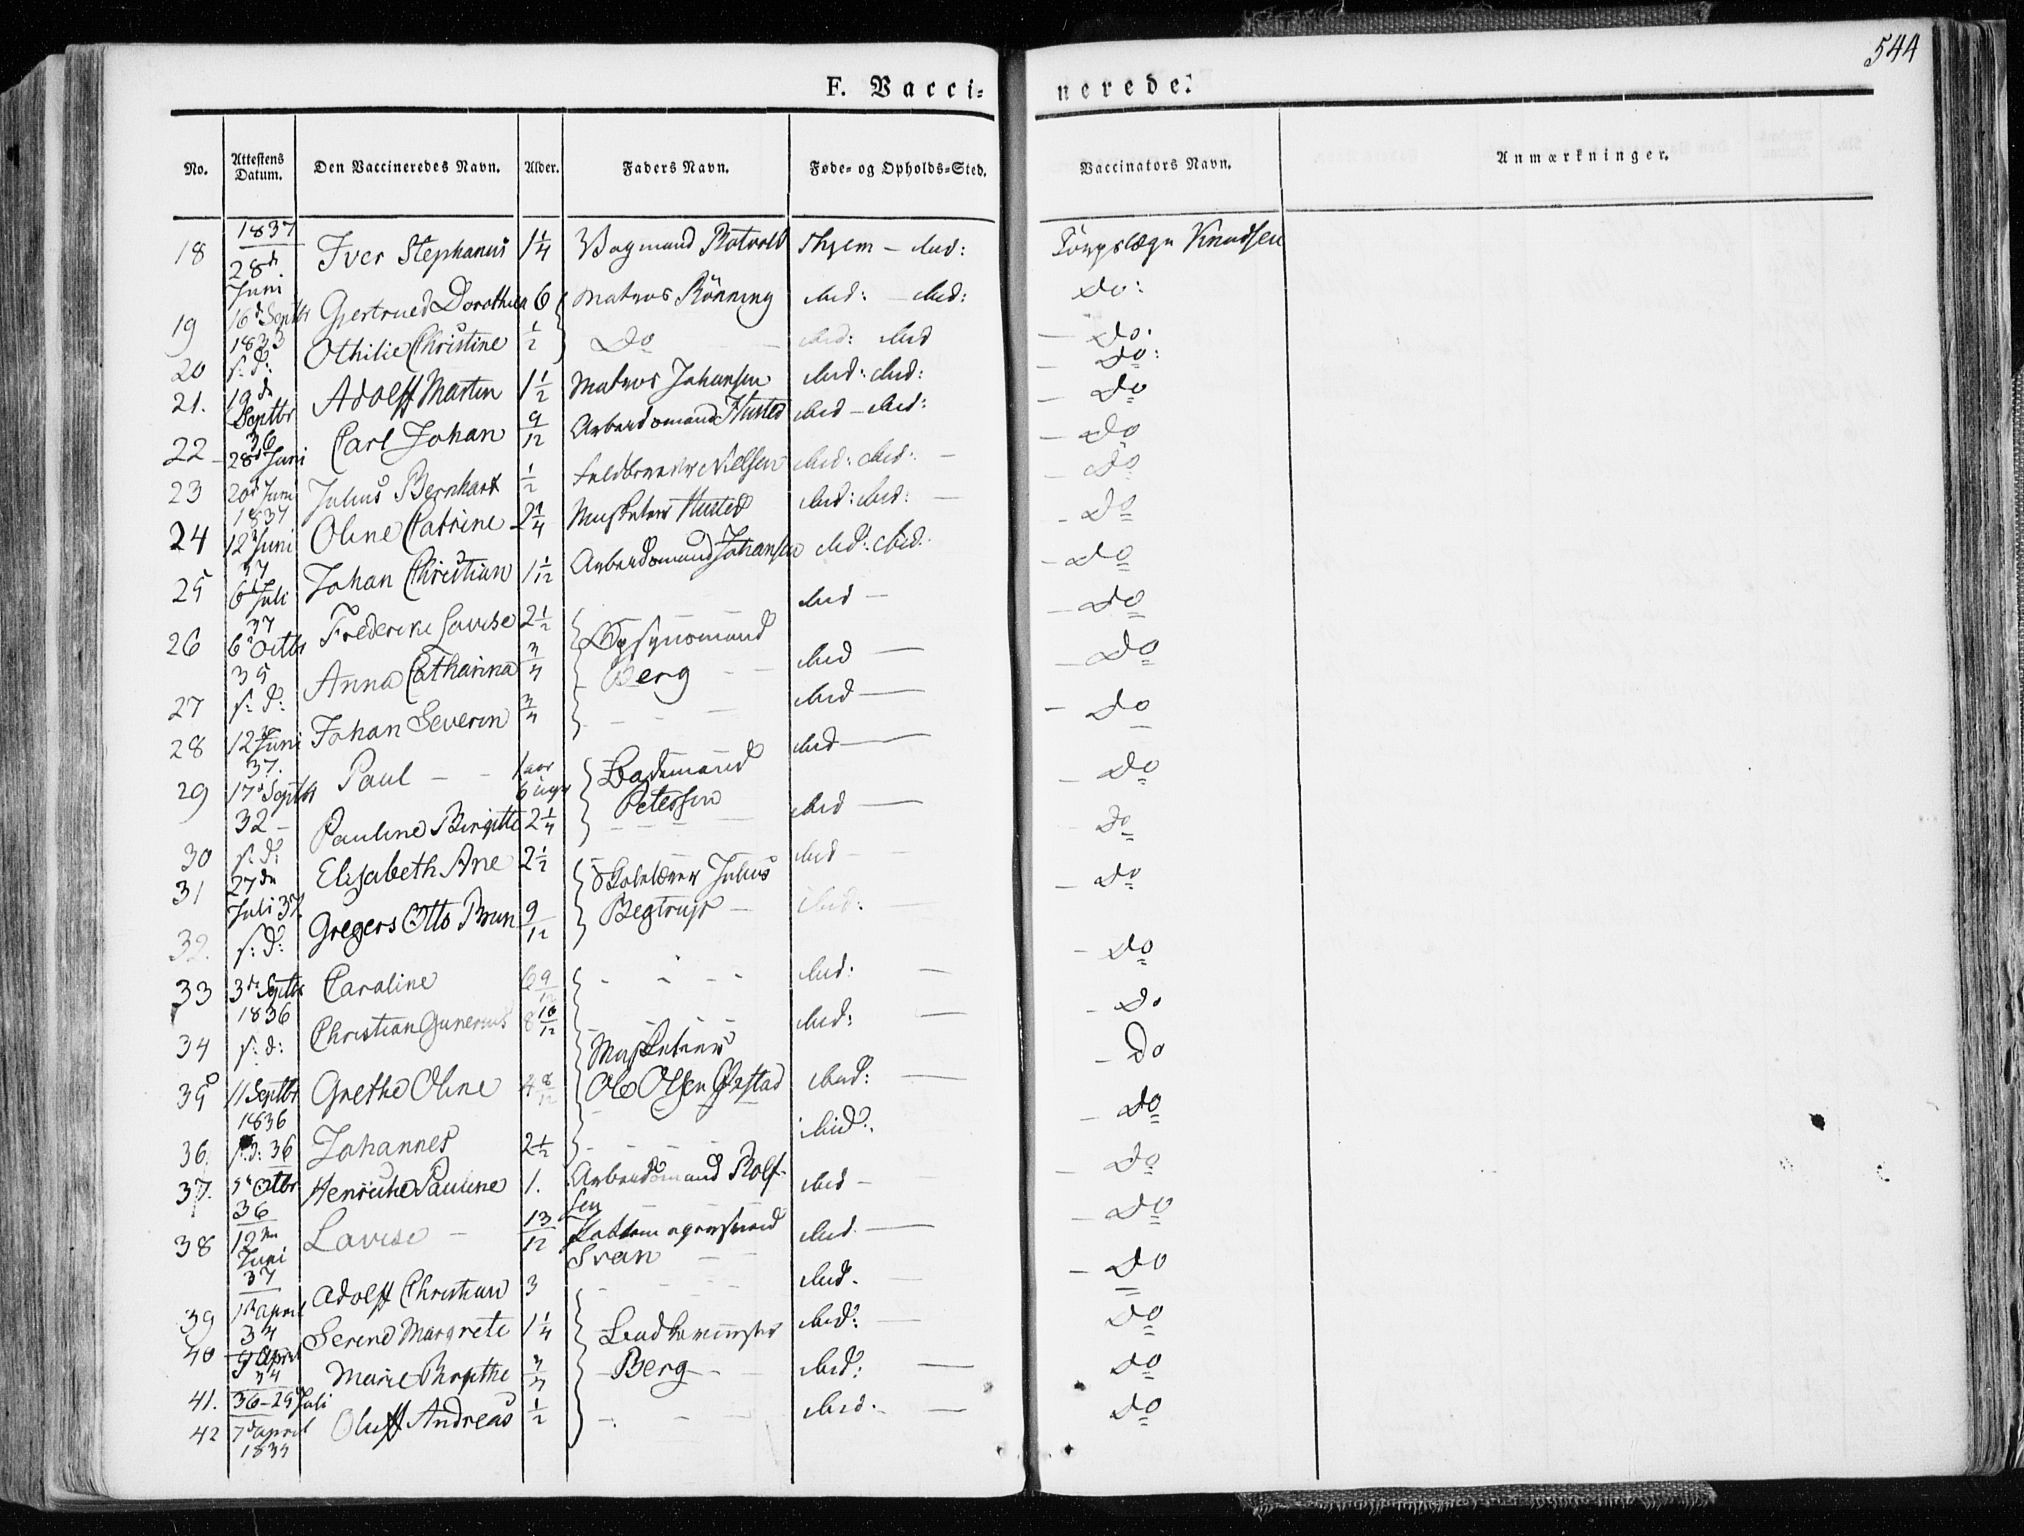 544
F. Vacci= nerede:
No. Attestens Datum. Den Vaccineredes Navn. Alder. Faders Navn. Føde= og Opholds=Sted. Vaccinators Navn. Anmærkninger.
1837
18 28d Juni Iver Stephanus 1 1/4 Thjem – ibid: Knudsen
19 16d Septbr 1833 Gjertrued Dorothea 6 Matros Rönning ibid: – ibid: Do:
20 s: d: Othilie Christine 1/2 Do ibid: ibid – Do:
21. 19de Septbr 36 Adolff Martin 1 1/2 Matros Johansen ibid: ibid: – Do:
22 28d Juni Carl Johan 9/12 Arbeidsmand Husted ibid – ibid: – Do
23 20d Juni 1837 Julius Bernhart 1/2 Nielsen ibid: ibid: – – Do
24 12 Juni 37 Oline Catrine 2 1/4 Husted ibid: ibid: – – Do
25 6d Juli 37 Johan Christian 1 1/12 Arbeidsmand Johansen ibid: ibid: – Do
26 6d Octbr 35 Frederike Lovise 2 1/2 ibid – – Do
27 s: d: Anna Catharina 3/4 Berg ibid – – Do
28 12 Juni 37. Johan Severin 3/4 ibid – – Do
29 17d Septbr 32 – Paul – – 1 aar 6 uger ibid – – Do
30 s: d: Pauline Birgitte 2 1/4 Petersen ibid – – Do
31 27de Juli 37 Elisabeth Ane 2 1/2 Julius ibid – – Do
32. s: d: Gregers Otto Brun 9/12 Begtrup – ibid: – – Do
33 3de Septbr 1836 Caroline 6 9/12 ibid: – – Do
34 s: d: Christian Gunerius 8 10/12 ibid: – – Do
35 11 Septbr 1836 Grethe Oline 4 8/12 Ole Olsen ibid: – – Do
36. s: d: 36 Johannes 2 1/2 ibid: – Do
37. 5d Octbr 36 Henriche Pauline 1. Arbeidsmand Rolf- ibid – – Do
sen
38 12te Juni 37 Lovise – 13/12 Svan ibid – – Do
39 1d April 34 Adolff Christian 3 ibid. – – Do
40 9d April 34 Serene Margrete 1 1/4 ibid: – Do
41. 36 – 29 Juli Marie 3/4 – Berg – ibid: – Do
42 7d April 1834 Oluff Andreas 1/2 ibid. – Do